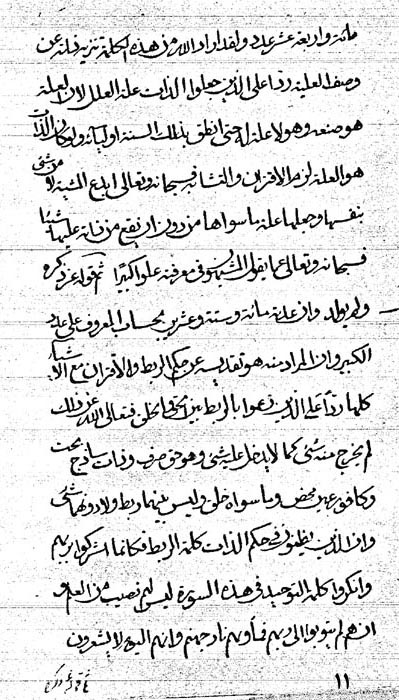 مائة واربعة عشر عدد ولقد اراد الله من هذه الكلمة تنزيه ذاته عن
وصف العلية ردا على الذين جعلوا الذات علة العلل لان العلة
هو صنعه وهو لا علة له حتى انطق بذلك السنة اوليائه ولو كان الذات
هو العلة لزم الاقتران والتشابه فسبحانه وتعالى ابدع المشية لا من شئ
بنفسها وجعلها علة ما سواها من دون ان يقع من ذاته عليها شيئا
فسبحانه وتعالى عما يقول المشبهون في معرفته علوا كبيرا ثم قوله عز ذكره
ولم يولد وان عدته مائة وستة وعشرين بحساب المعروف على عدد
الكبير وان المراد منه هو تقديسه عن حكم الربط والاقتران مع الاشياء
كلها ردا على الذين زعموا بالربط بين الحق والخلق فتعالى الله عن ذلك
لم يخرج منه شئ كما لا يدخل عليه شئ وهو حق صرف وذات ساذج بحت
وكافور محض وما سواه خلق وليس بينهما ربط ولا دونهما شئ
وان الذين يظنون في حكم الذات كلمة الربط فكانما اشركوا بربهم
وانكروا كلمة التوحيد في هذه السورة ليس لهم نصيب من العلم و
ان هم لم يتوبوا الى ربهم فمأويهم نار جهنم وانهم اليوم لا يشعرون
١١
ثم قوله عز ذكره